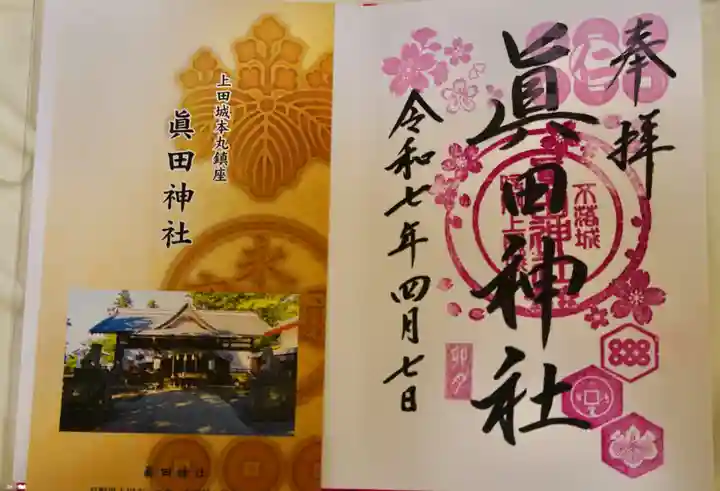 奉拝
眞田神社
令和七年四月七日
不落城
卯月
上田城本丸鎮座
眞田神社
眞田神社